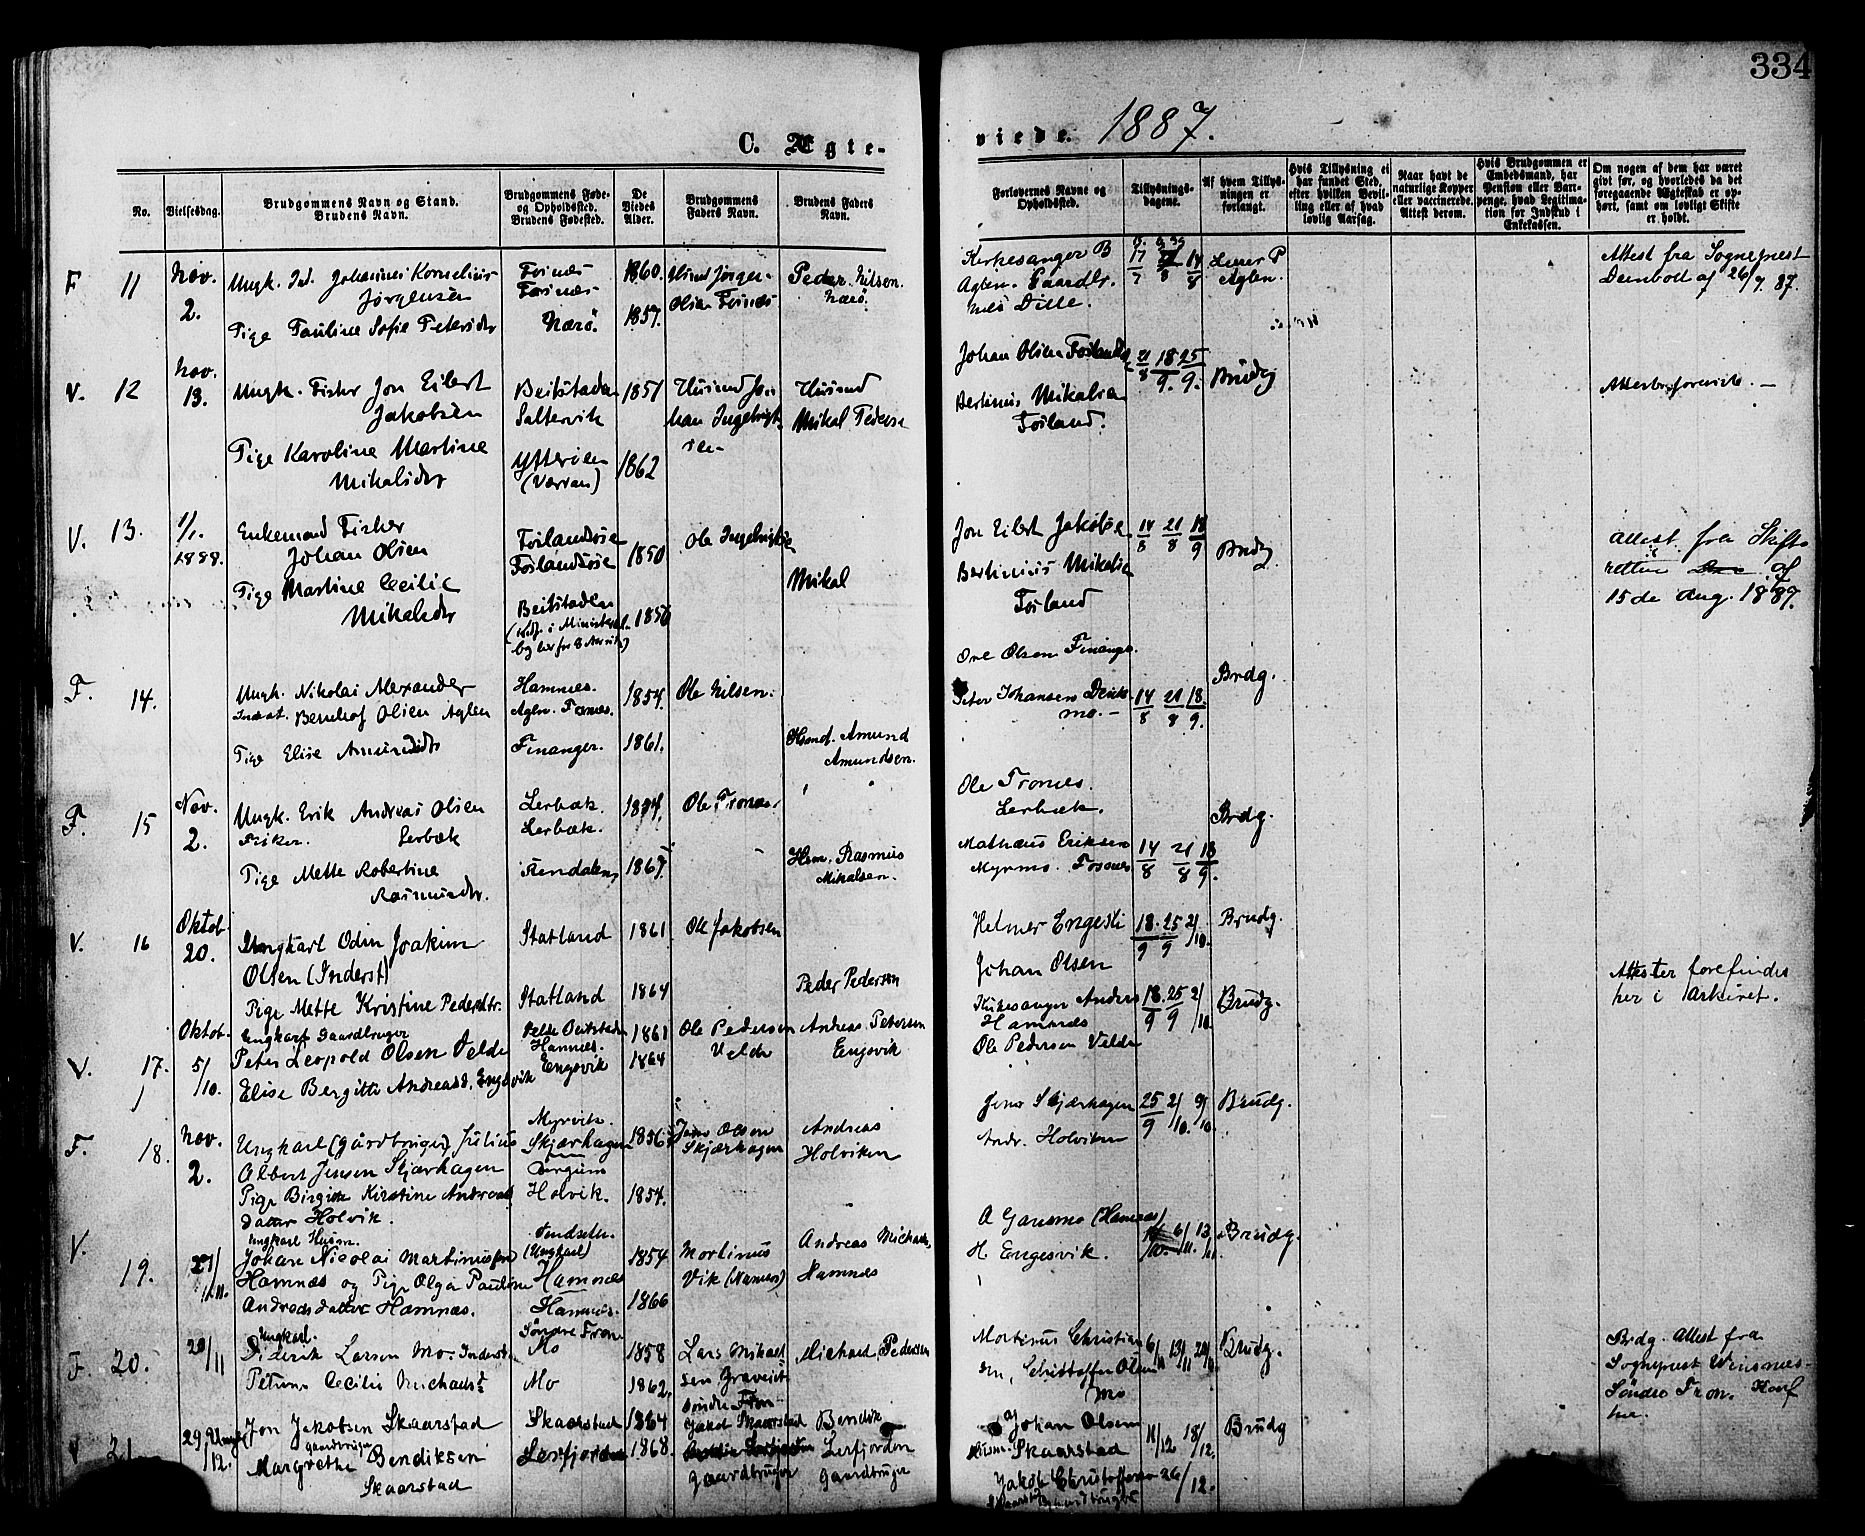 334
C. Ægte-
viede. 1887.
No.
Vielsesdag.
Brudgommens Navn og Stand.
Brudens Navn.
Brudgommens Føde-
og Opholdssted.
Brudens Fødested.
De
Viedes
Alder.
Brudgommens
Faders Navn.
Brudens Faders
Navn.
Forlovernes Navne og
Opholdssted.
Tillysnings-
dagene.
Af hvem Tillys-
ningen er
forlangt.
Hvis Tillysning ei
har fundet Sted,
efter hvilken Bevil-
ling eller af hvad
lovlig Aarsag.
Naar havt de
naturlige Kopper
eller vaccinerede.
Attest derom.
Hvis Brudgommen er
Embedsmand, har
Pension eller Var-
penge, hvad Legitima-
tion for Indskud i
Enkekassen.
Om nogen af dem har været
givt før, og hvorledes da det
foregaaende Ægteskab er op-
hørt, samt om lovligt Skifte
er holdt.
F 11 Nov. 2.
Ungk. Ind. Johannes Kornelius
Jörgensen
Pige Pauline Sofie Petersdtr
Fosnæs
Fosnæs
Nærö.
1860.
1857.
Peder Nilsen.
Nærö.
Kirkesanger B
Aglen. Gaardbr.
Nils Dille.
P
Aglen.
Attest fra Sognepræst
Deinboll af 26/7 87.
V. 12 Nov. 13.
Ungk. Fisker Jon Eilert
Jakobsen
Pige Karoline Martine
Mikalsdtr
Beitstaden
Saltervik
Ytteröen
(Værran)
1851
1862
Husmd
Mikal Peders
Johan Olsen
Bertinius Mikalsen
21/8 18/9. 25/9.
Brudg
V. 13. 1/1. 1888.
Enkemand Fisker
Johan Olsen
Pige Martine Cecilie
Mikalsdtr
Beitstaden
1850
1856
Ole Ingebrigtsen
Mikal
Jon Eilert Jakobse
Bertinius Mikalse
14/8 21/8 18/9
Brudg.
Attest fra Skifte
retten af
15de Aug. 1887.
F. 14.
Ungk. Nikolai Alexander
Inderst. Bernhof Olsen Aglen
Pige Elise Amundsdtr
Hamnes.
Aglen. Fosnæs.
Finanger.
1854.
1861.
Ole Nilsen.
Amund
Amundsen.
Ove Olsen Finanger.
Peter Johansen
mo. —
14/8 21/8 18/9.
Brdg.
F. 15 Nov. 2.
Ungk. Erik Andreas Olsen
Fisker. Lerbæk
Pige Mette Robertine
Rasmusdtr.
Lerbæk.
Lerbæk.
1867.
Ole Fronæs.
Hsm. Rasmus
Mikalsen.
Ole Fronæs.
Lerbæk.
Mathæus Eriksen
Myrmo. Fosnæs
14/8 21/8 18/9.
Brdg.
V. 16 Oktob 20.
Ungkarl Odin Joakim
Olsen (Inderst)
Pige Mette Kristine Pedersdtr.
Statland
Statland
1861
1864
Ole Jakobsen
Peder Pedersen
Helmer Engesli
Johan Olsen
18/9 25/9 2/10.
Brudg.
Attester forefindes
her i Arkivet.
V. 17. Oktob. 5/10.
Ungkarl Gaardbruger
Peter Leopold Olsen Velde
Elise Bergitte Andreasd. Engesvik
Velde Beitstaden
Hamnes.
Engsvik
1861
1864
Ole Pedersen
Velde
Andreas Petersen
Engsvik
Kirkesanger Anders
Hamnæs
Ole Pedersen Velde
18/9 25/9 2/10.
Brudg.
F. 18. Nov. 2.
Ungkarl (gårdbruger) Julius
Albert Jensen Skjærhagen
Pige Birgitte Kirstine Andreas
datter Holvik.
Myrvik.
Skjærhagen
Holvik.
1856
1854.
Jens Olsen
Skjærhagen
Andreas
Holviken
Jens Skjærhagen
Andr. Holviken
25/9 2/10. 9/10.
Brudg.
V. 19. 27/11.
Ungkarl Husm.
Johan Nicolai Martinussen
Hamnæs og Pige Olga Pauline
Andreasdatter Hamnæs.
(Ungkarl)
Hamnæs
Hamnæs.
1854
1866
Mortinus
Vik (Namsos)
Andreas Michaels
Hamnæs
A Gausmo (Hamnæs)
H. Engesvik.
6/11. 13/11.
Brudg.
F. 20. 29/11
Ungkarl.
Diderik Larsen Mo. Inderst.
Petrine Cecilie Michaelsd.
Söndre Fron
Mo
Mo
1858
1862.
Lars Mikael
sen Graveist
Söndre Fron
Michael Pedersen
Mortinus Christian
sen, Christoffer Olsen
Mo
6/11 13/11 20/11
Brudg.
Brdg. Attest fra
Sognepræst Winsnes-
Söndre Fron.
V 21 29/12.
Jon Jakobsen Skaarstad
gaardbruger
Margrethe Bendiksen
Skaarstad
Skaarstad
Lerfjorden
1864
1868.
Jakob Skaarstad
Gaardbruger
Bendik
Lerfjorden
Gaardbruger
Johan Olsen
Skaarstad
Jakob Christoffersen
Skaarstad Gaardbruger
11/12 18/12. 26/12.
Brudg